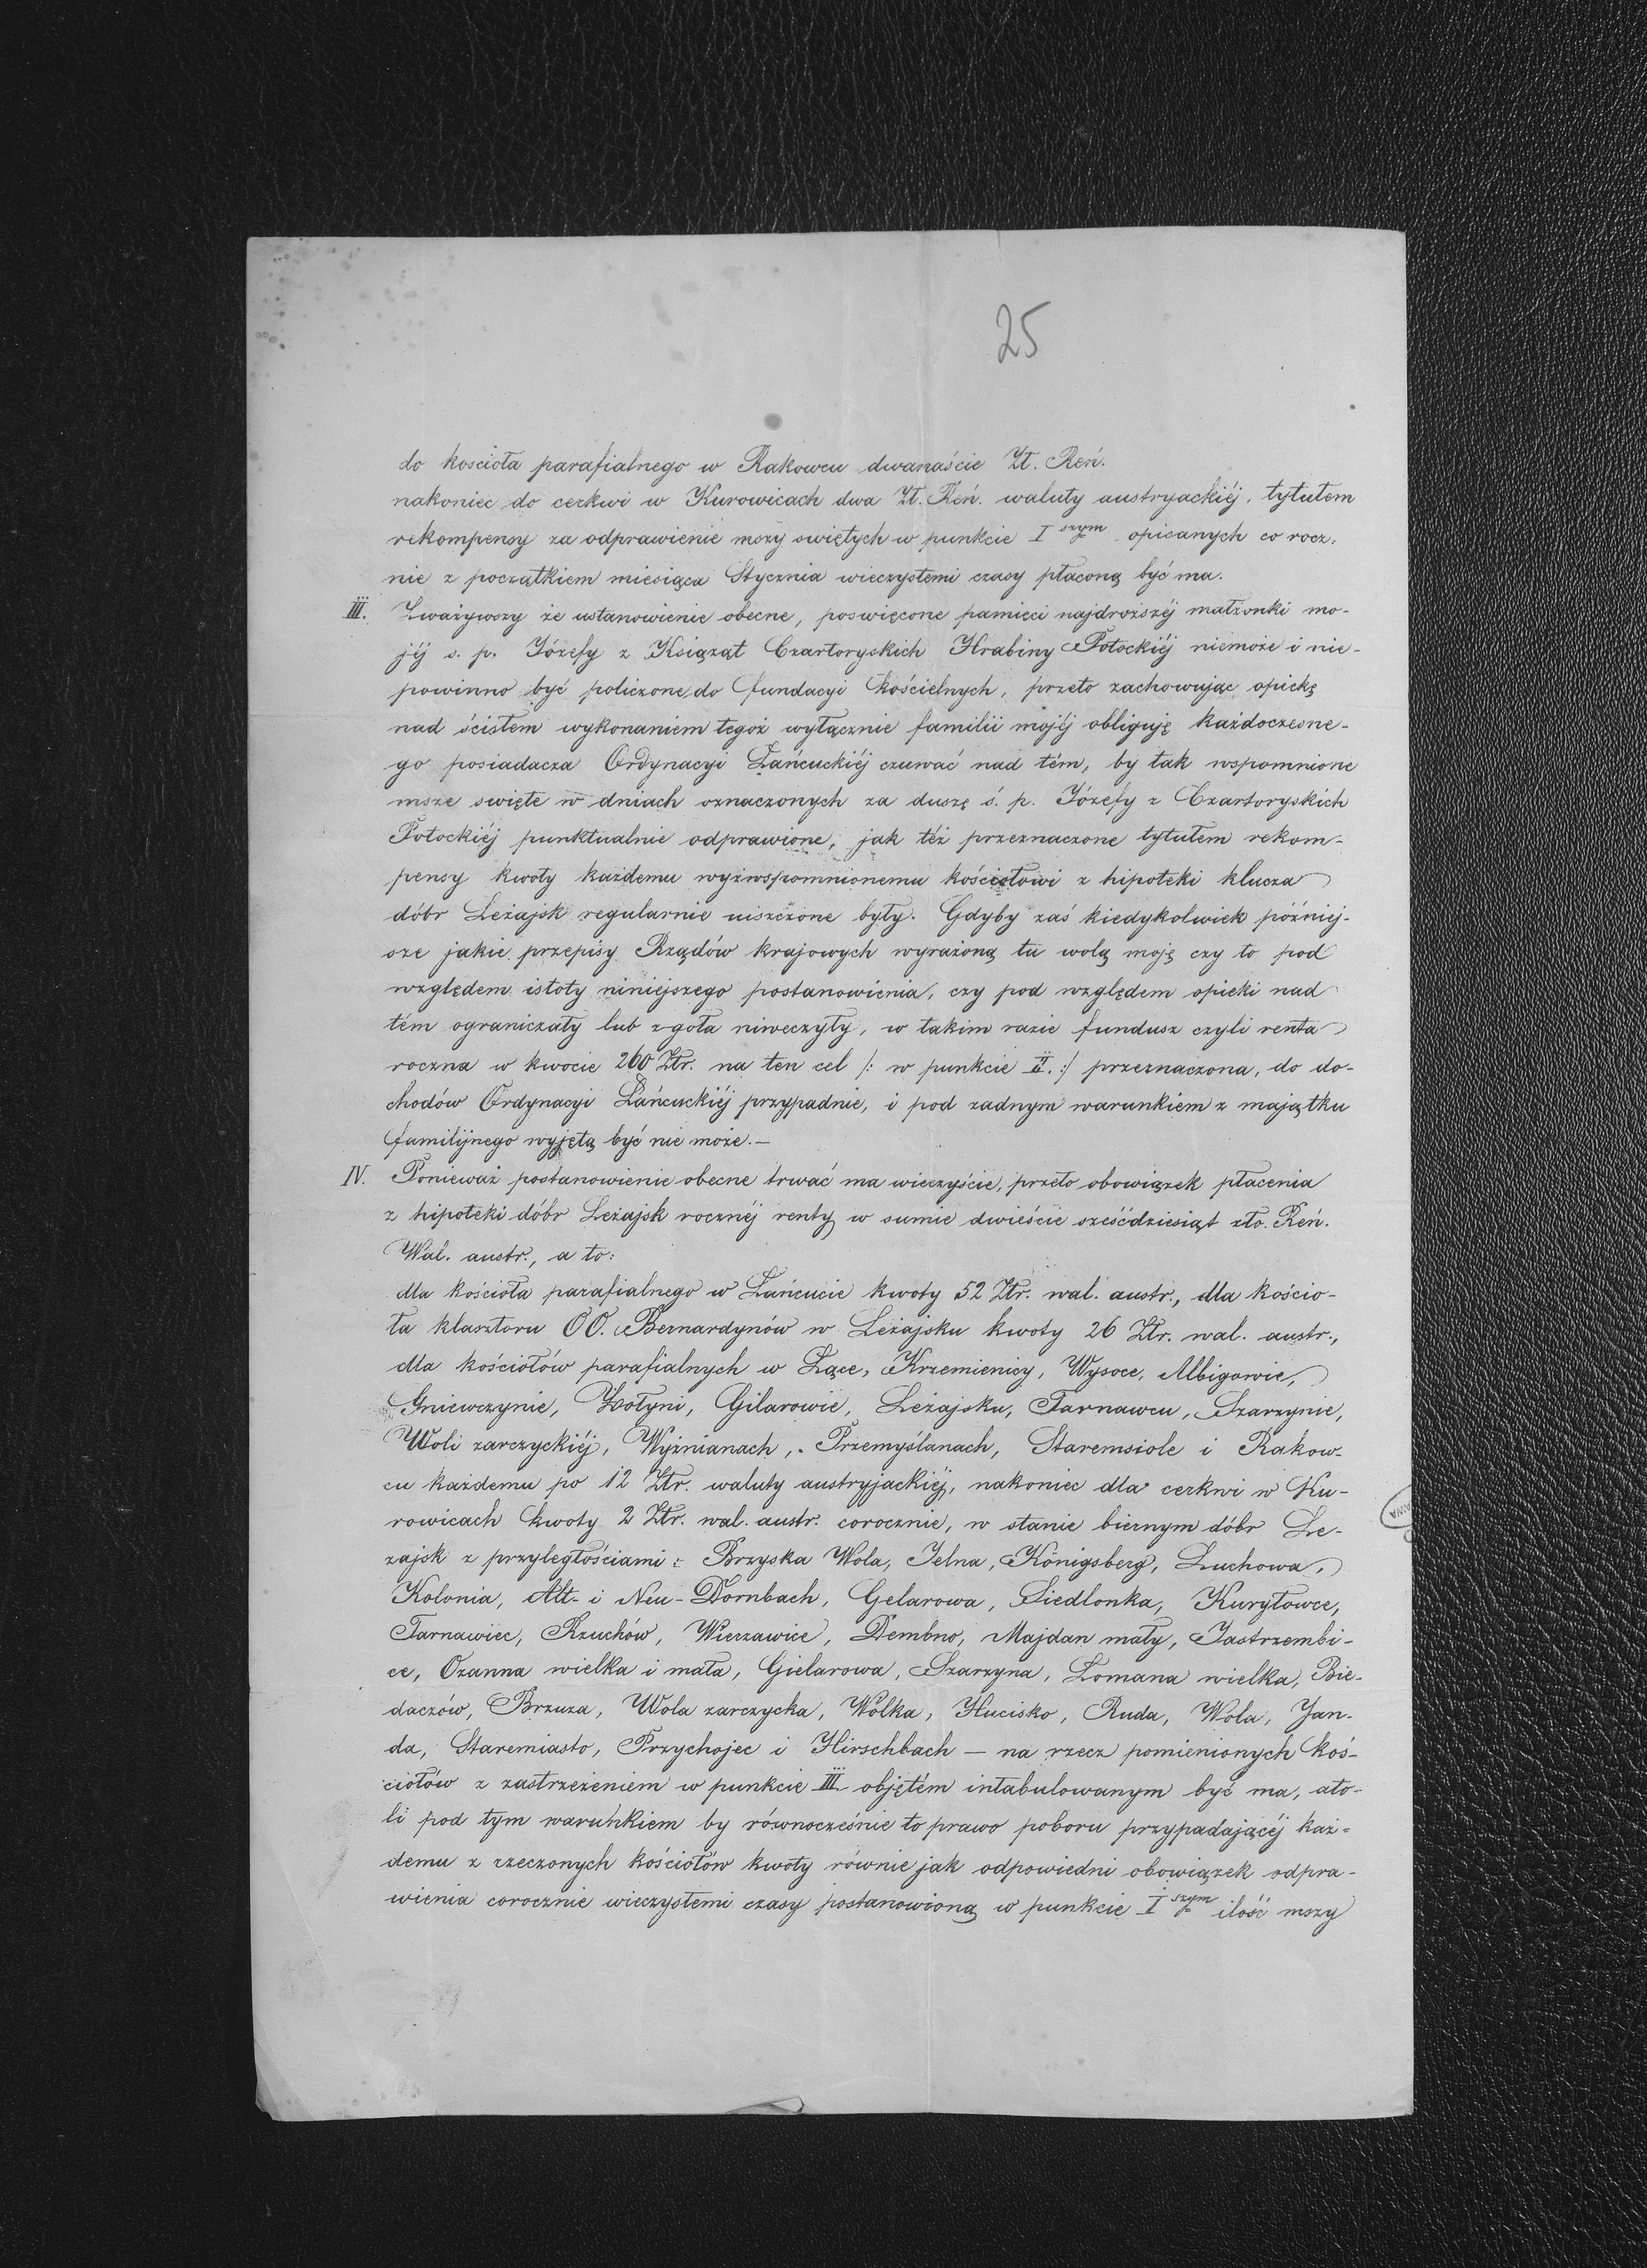 25
do kościoła parafialnego w Rakowcu dwanaście Zł. Reń.
nakoniec do cerkwi w Kurowicach dwa Zł. Reń. waluty austryackiéj, tytułem
rekompensy za odprawienie mszy swiętych w punkcie I szym opisanych co rocz-
nie z początkiem miesiąca Stycznia wieczystemi czasy płaconą być ma.
III. Zważywszy że ustanowienie obecne, poswięcone pamięci najdroższéj małżonki mo-
jéj s. p. Józefy z Książąt Czartoryskich Hrabiny Potockiéj niemoże i nie-
powinno być policzone do fundacyi kościelnych, przeto zachowując opiekę
nad ścisłem wykonaniem tegoż wyłącznie familii mojéj obliguję każdoczesne-
go posiadacza Ordynacyi Łańcuckiéj czuwać nad tém, by tak wspomnione
msze swięte w dniach oznaczonych za duszę ś. p. Józefy z Czartoryskich
Potockiéj punktualnie odprawione, jak téż przeznaczone tytułem rekom-
pensy kwoty każdemu wyżwspomnionemu kościołowi z hipoteki klucza
dóbr Leżajsk regularnie uiszczone były. Gdyby zaś kiedykolwiek później-
sze jakie przepisy Rządów krajowych wyrażoną tu wolą moję czy to pod
względem istoty niniejszego postanowienia, czy pod względem opieki nad
tém ograniczały lub zgoła niweczyły, w takim razie fundusz czyli renta
roczna w kwocie 260 Złr. na ten cel /: w punkcie II. :/ przeznaczona, do do-
chodów Ordynacyi Łańcuckiéj przypadnie, i pod żadnym warunkiem z majątku
familijnego wyjętą być nie może.—
IV. Ponieważ postanowienie obecne trwać ma wieczyście, przeto obowiązek płacenia
z hipoteki dóbr Leżajsk rocznéj renty w sumie dwieście sześćdziesiąt zło. Reń.
Wal. austr., a to:
dla kościoła parafialnego w Łańcucie kwoty 52 Złr. wal. austr., dla kościo-
ła klasztoru OO. Bernardynów w Leżajsku kwoty 26 Złr. wal. austr.,
dla kościołów parafialnych w Łące, Krzemienicy, Wysoce, Albigowie,
Gniewczynie, Żołyni, Gilarowie, Leżajsku, Tarnawcu, Szarzynie,
Woli zarczyckiéj, Wyżnianach, Przemyślanach, Staremsiole i Rakow-
cu każdemu po 12 Złr. waluty austryjackiéj, nakoniec dla cerkwi w Ku-
rowicach kwoty 2 Złr. wal. austr. corocznie, w stanie biernym dóbr Le-
zajsk z przyległościami: Brzyska Wola, Jelna, Königsberg, Luchowa,
Kolonia, Alt- i Neu-Dornbach, Gelarowa, Siedlonka, Kuryłowce,
Tarnawiec, Rzuchów, Wierzawice, Dembno, Majdan mały, Jastrzembi-
ce, Ozanna wielka i mała, Gielarowa, Szarzyna, Łomana wielka, Bie-
daczów, Brzuza, Wola zarczycka, Wólka, Hucisko, Ruda, Wola, Jan-
da, Staremiasto, Przychojec i Hirschbach — na rzecz pomienionych koś-
ciołów z zastrzeżeniem w punkcie III objętém intabulowanym być ma, ato-
li pod tym warunkiem by równocześnie to prawo poboru przypadającéj każ-
demu z rzeczonych kościołów kwoty równie jak odpowiedni obowiązek odpra-
wienia corocznie wieczystemi czasy postanowioną w punkcie I szym ilość mszy